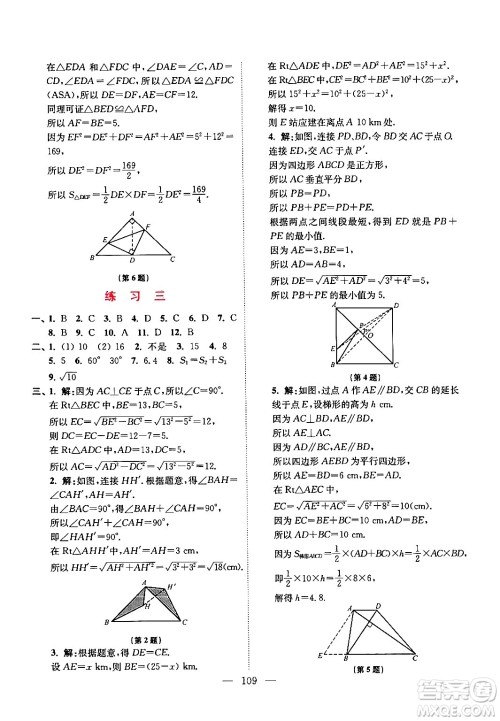 在△EDA 和△FDC 中，∠DAE=∠C，AD=
CD，∠EDA=∠FDC，所以△EDA≌△FDC
(ASA)。所以 DE=DF，AE=CF=12。
同理可证△BED≌△AFD。
所以 AF=BE=5。
因为 EF²=DE²+DF²=2DE²=AE²+AF²=
169，
所以 DE²=DF²=169/2。
所以 S△DEF=1/2DE×DF=1/2DE²=169/4。
A
E
F
B
D
C
(第 6 题)
练 习 三
一、1. B 2. C 3. D 4. B 5. C 6. D 7. C
8. B 9. C 10. D 11. C 12. D 13. B
二、1. (1) 10 (2) 16 2. 不是 3. 15 4. 8
5. 5 6. 60° 30° 7. 6.4 8. S₁=S₂
9. √10
三、1. 解：因为 AC⊥CE 于点 C，所以∠C=90°。
在 Rt△BEC 中，因为 BE=13，BC=5，
所以 EC=√BE²-BC²=√13²-5²=12。
所以 DC=EC-DE=12-7=5。
在 Rt△ADC 中，因为 AD=13，DC=5，
所以 AC=√AD²-DC²=√13²-5²=12。
2. 解：连接 HH′。根据题意，得∠BAH=
∠CAH′，AH′=AH=3。
因为∠BAC=90°，所以∠BAH+∠HAC=
90°。所以∠CAH′+∠HAC=90°，
即∠HAH′=90°。
在 Rt△AHH′中，因为 AH′=AH=3，
所以 HH′=√AH²+AH′²=√18(cm)。
A
H′
H
B
C
(第 2 题)
3. 解：根据题意，得∠A=∠B=90°。
设 AE=x km，则 BE=(25-x) km。
在 Rt△ADE 中，DE²=AD²+AE²=15²+x²，
在 Rt△BCE 中，CE²=BC²+BE²=10²+(25-x)²。
因为 DE=CE，所以 15²+x²=10²+(25-x)²。
解得 x=10。
则 E 站应建在离 A 站 10 km 处。
4. 解：如图，连接 PD、BD，BD 交 AC 于点 O，
连接 ED 交 AC 于点 P′。
因为四边形 ABCD 是正方形，
所以 AC 垂直平分 BD。所以 PB=PD。
所以 PB+PE=PD+PE。
根据两点之间线段最短，可知 ED 为 PB+
PE 的最小值。
因为 AB=4，BE=1，所以 AE=3。
所以 ED=√AE²+AD²=√3²+4²=5。
所以 PB+PE 的最小值为 5。
(第 4 题)
5. 解：如图，过点 A 作 AE∥BD，交 CB 的延长
线于点 E，设梯形的高为 h cm。
因为 AC⊥BD，AE∥BD，
所以 AC⊥AE。所以∠EAC=90°。
因为 AD∥BC，AE∥BD，
所以四边形 AEBD 为平行四边形。
所以 AD=EB，AE=BD=8 cm。
在 Rt△EAC 中，
EC=√AE²+AC²=√8²+6²=10(cm)。
所以 AD+BC=10 cm。
因为 S梯形ABCD=1/2×(AD+BC)×h=1/2×10×h，
即 1/2×10×h=1/2×8×6。
解得 h=4.8。
A
D
E
B
C
(第 5 题)
109